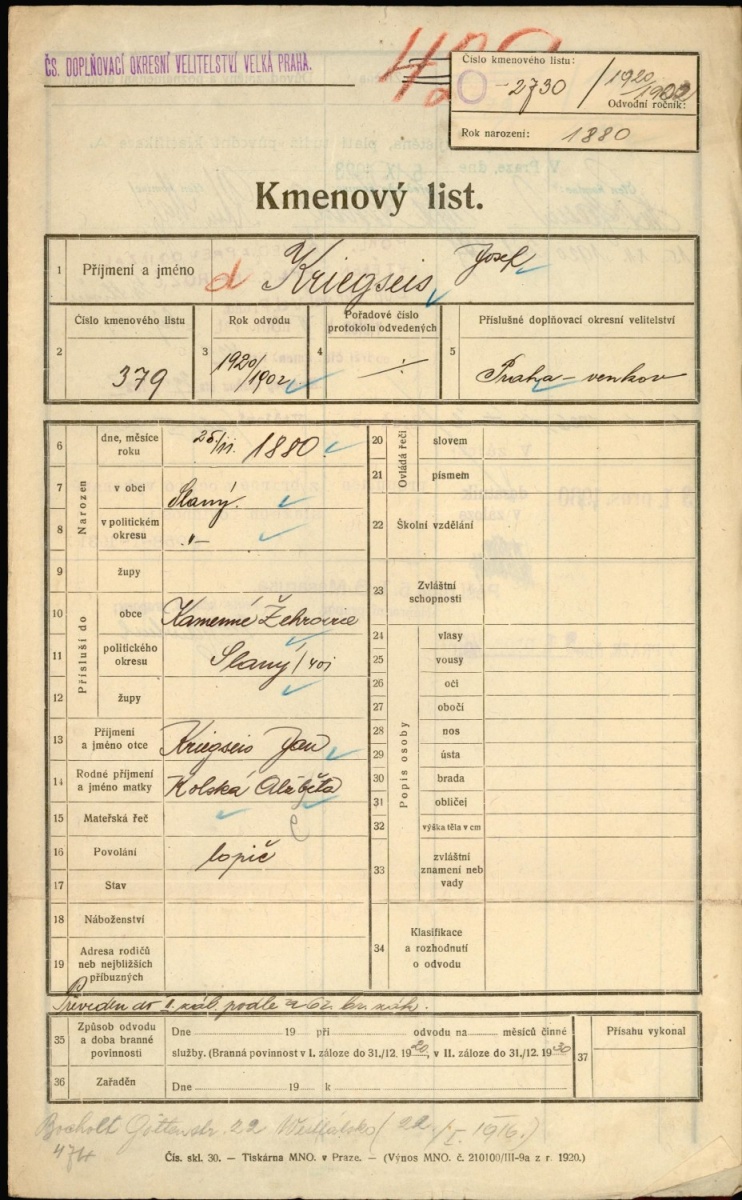 ČS. DOPLŇOVACÍ OKRESNÍ VELITELSTVÍ VELKÁ PRAHA.
Číslo kmenového listu:
0-2730 / 1920/1902
Odvodní ročník:
Rok narození: 1880
Kmenový list.
1 Příjmení a jméno d Kriegseis Josef
Číslo kmenového listu
2
379
Rok odvodu
3
1920/1902
Pořadové číslo
protokolu odvedených
4
Příslušné doplňovací okresní velitelství
5
Praha-venkov
Narozen
6 dne, měsíce
roku
25/11. 1880.
7 v obci Slaný.
8 v politickém
okresu
"-
9 župy
Přísluší do
10 obce Kamenné Žehrovice
11 politického
okresu
Slaný/401
12 župy
13 Příjmení
a jméno otce
Kriegseis Jan
14 Rodné příjmení
a jméno matky
Kolská Alžběta
15 Mateřská řeč č
16 Povolání topič
17 Stav
18 Náboženství
19 Adresa rodičů
neb nejbližších
příbuzných
Ovládá řeči
20 slovem
21 písmem
22 Školní vzdělání
23 Zvláštní
schopnosti
Popis osoby
24 vlasy
25 vousy
26 oči
27 obočí
28 nos
29 ústa
30 brada
31 obličej
32 výška těla v cm
33 zvláštní
znamení neb
vady
34 Klasifikace
a rozhodnutí
o odvodu
Převeden do I. zál. podle br. zák.
35 Způsob odvodu
a doba branné
povinnosti
Dne 19 při odvodu na měsíců činné
služby. (Branná povinnost v I. záloze do 31./12. 1920, v II. záloze do 31./12. 1930
36 Zařaděn
Dne 19 k
37 Přísahu vykonal
Bocholt 22 (22./I. 1916.)
474
Čís. skl. 30. — Tiskárna MNO. v Praze. — (Výnos MNO. č. 210100/III-9a z r. 1920.)